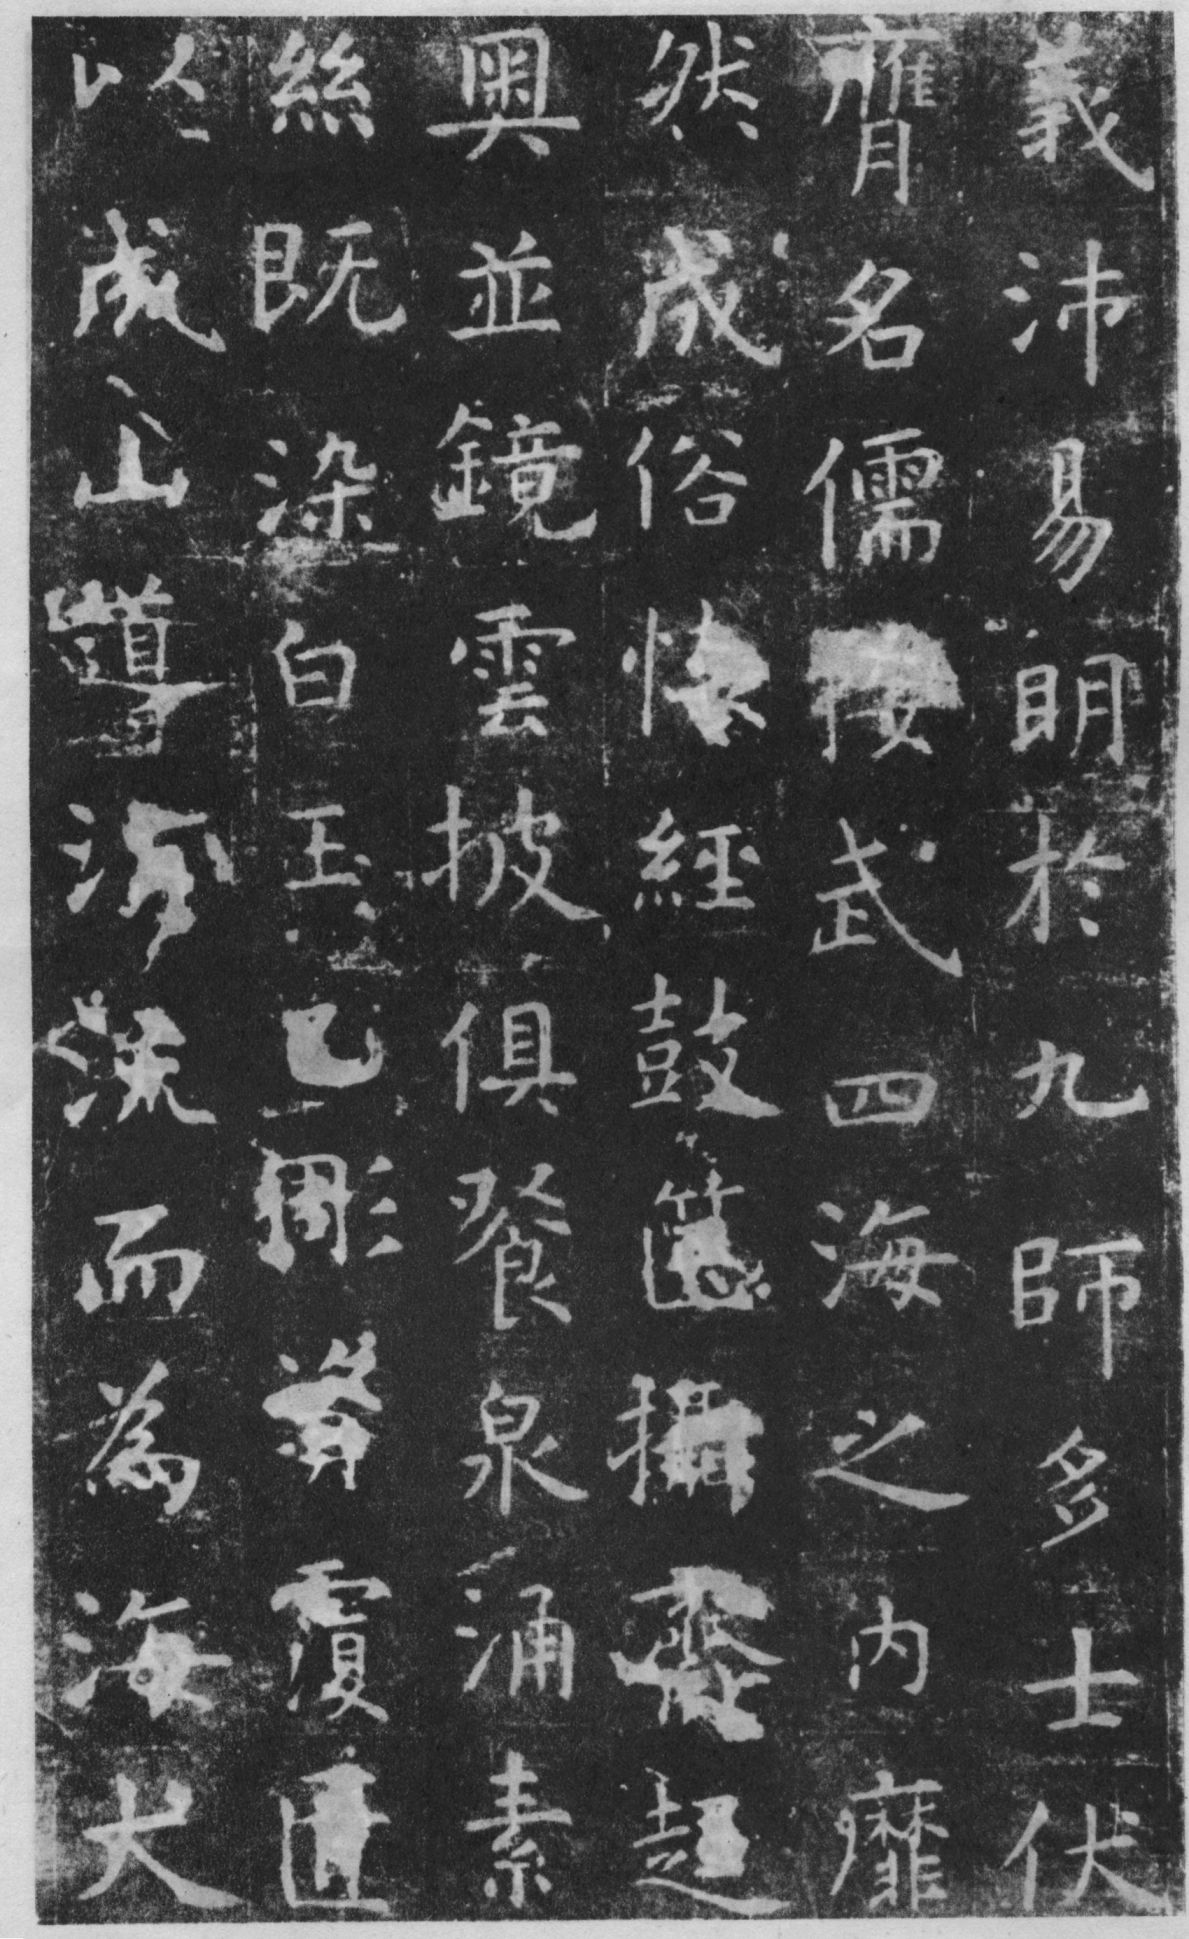 義沛易眀於九師多士伏
膺名儒接武四海之內靡
然成俗懷經鼓篋攝齊趍
奧並鏡雲披俱餐泉涌素
絲既染白玉已彫資覆匱
以成山導涓流而為海大